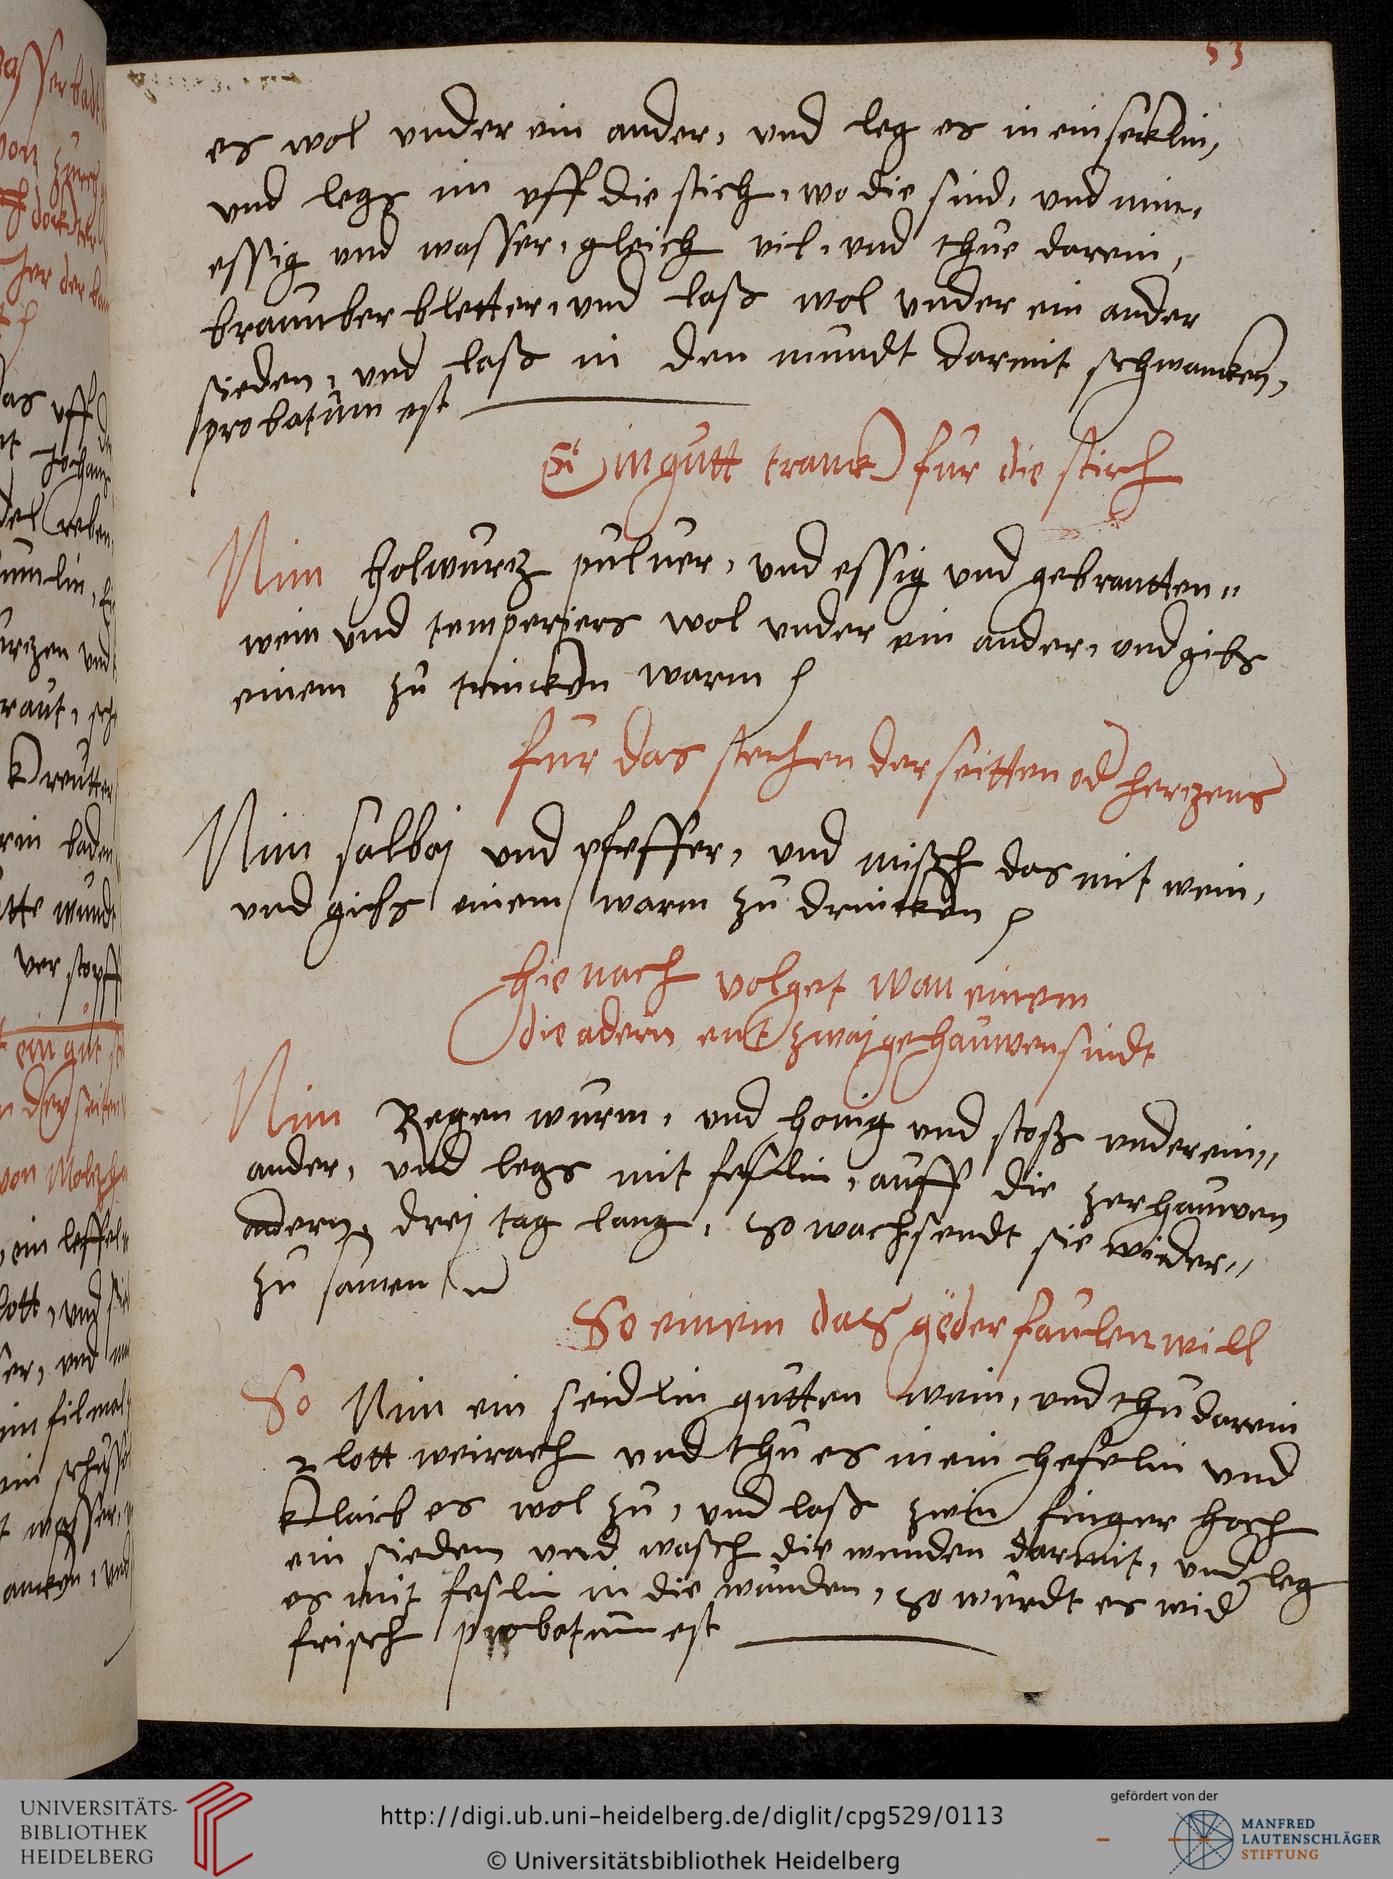 53
es wol vnder ein ander, vnd leg es in ein secklin,
vnd legs im vff die stich, wo die sind, vnd nim,
essig vnd wasser, gleich vil, vnd thue darein,
braunber bletter, vnd laß wol vnder ein ander
sieden, vnd laß in den mundt darmit schwancken,
probatum est
Ein gutt tranck fur die stich
Nim holwurtz puluer, vnd essig vnd gebrantten"
wein vnd temperiers wol vnder ein ander, vnd gibs
einem zu trincken warm
fur das stechen der seitten od hertzens
Nim salbaj vnd pfeffer, vnd misch das mit wein,
vnd gibs einem warm zu drincken
hie nach volget wan einem
die adern entzwaj gehauwen sindt
Nim Regen wurm, vnd honig vnd stoß vnderein"
ander, vnd legs mit feslin, auff die zerhauwen
adern, drej tag lang, so wachsendt sie wider"
zu samen
So einem das geöder faulen will
So Nim ein seidlin gutten wein, vnd thu darein
2 lott weirach vnd thu es in ein hefelin vnd
klaib es wol zu, vnd laß zwin finger hoch
ein sieden vnd wasch die wunden darmit, vnd leg
es mit feslin in die wunden, so wurdt es wid
frisch probatum est
UNIVERSITÄTS-
BIBLIOTHEK
HEIDELBERG
http://digi.ub.uni-heidelberg.de/diglit/cpg529/0113
© Universitätsbibliothek Heidelberg
gefördert von der
MANFRED
LAUTENSCHLÄGER
STIFTUNG